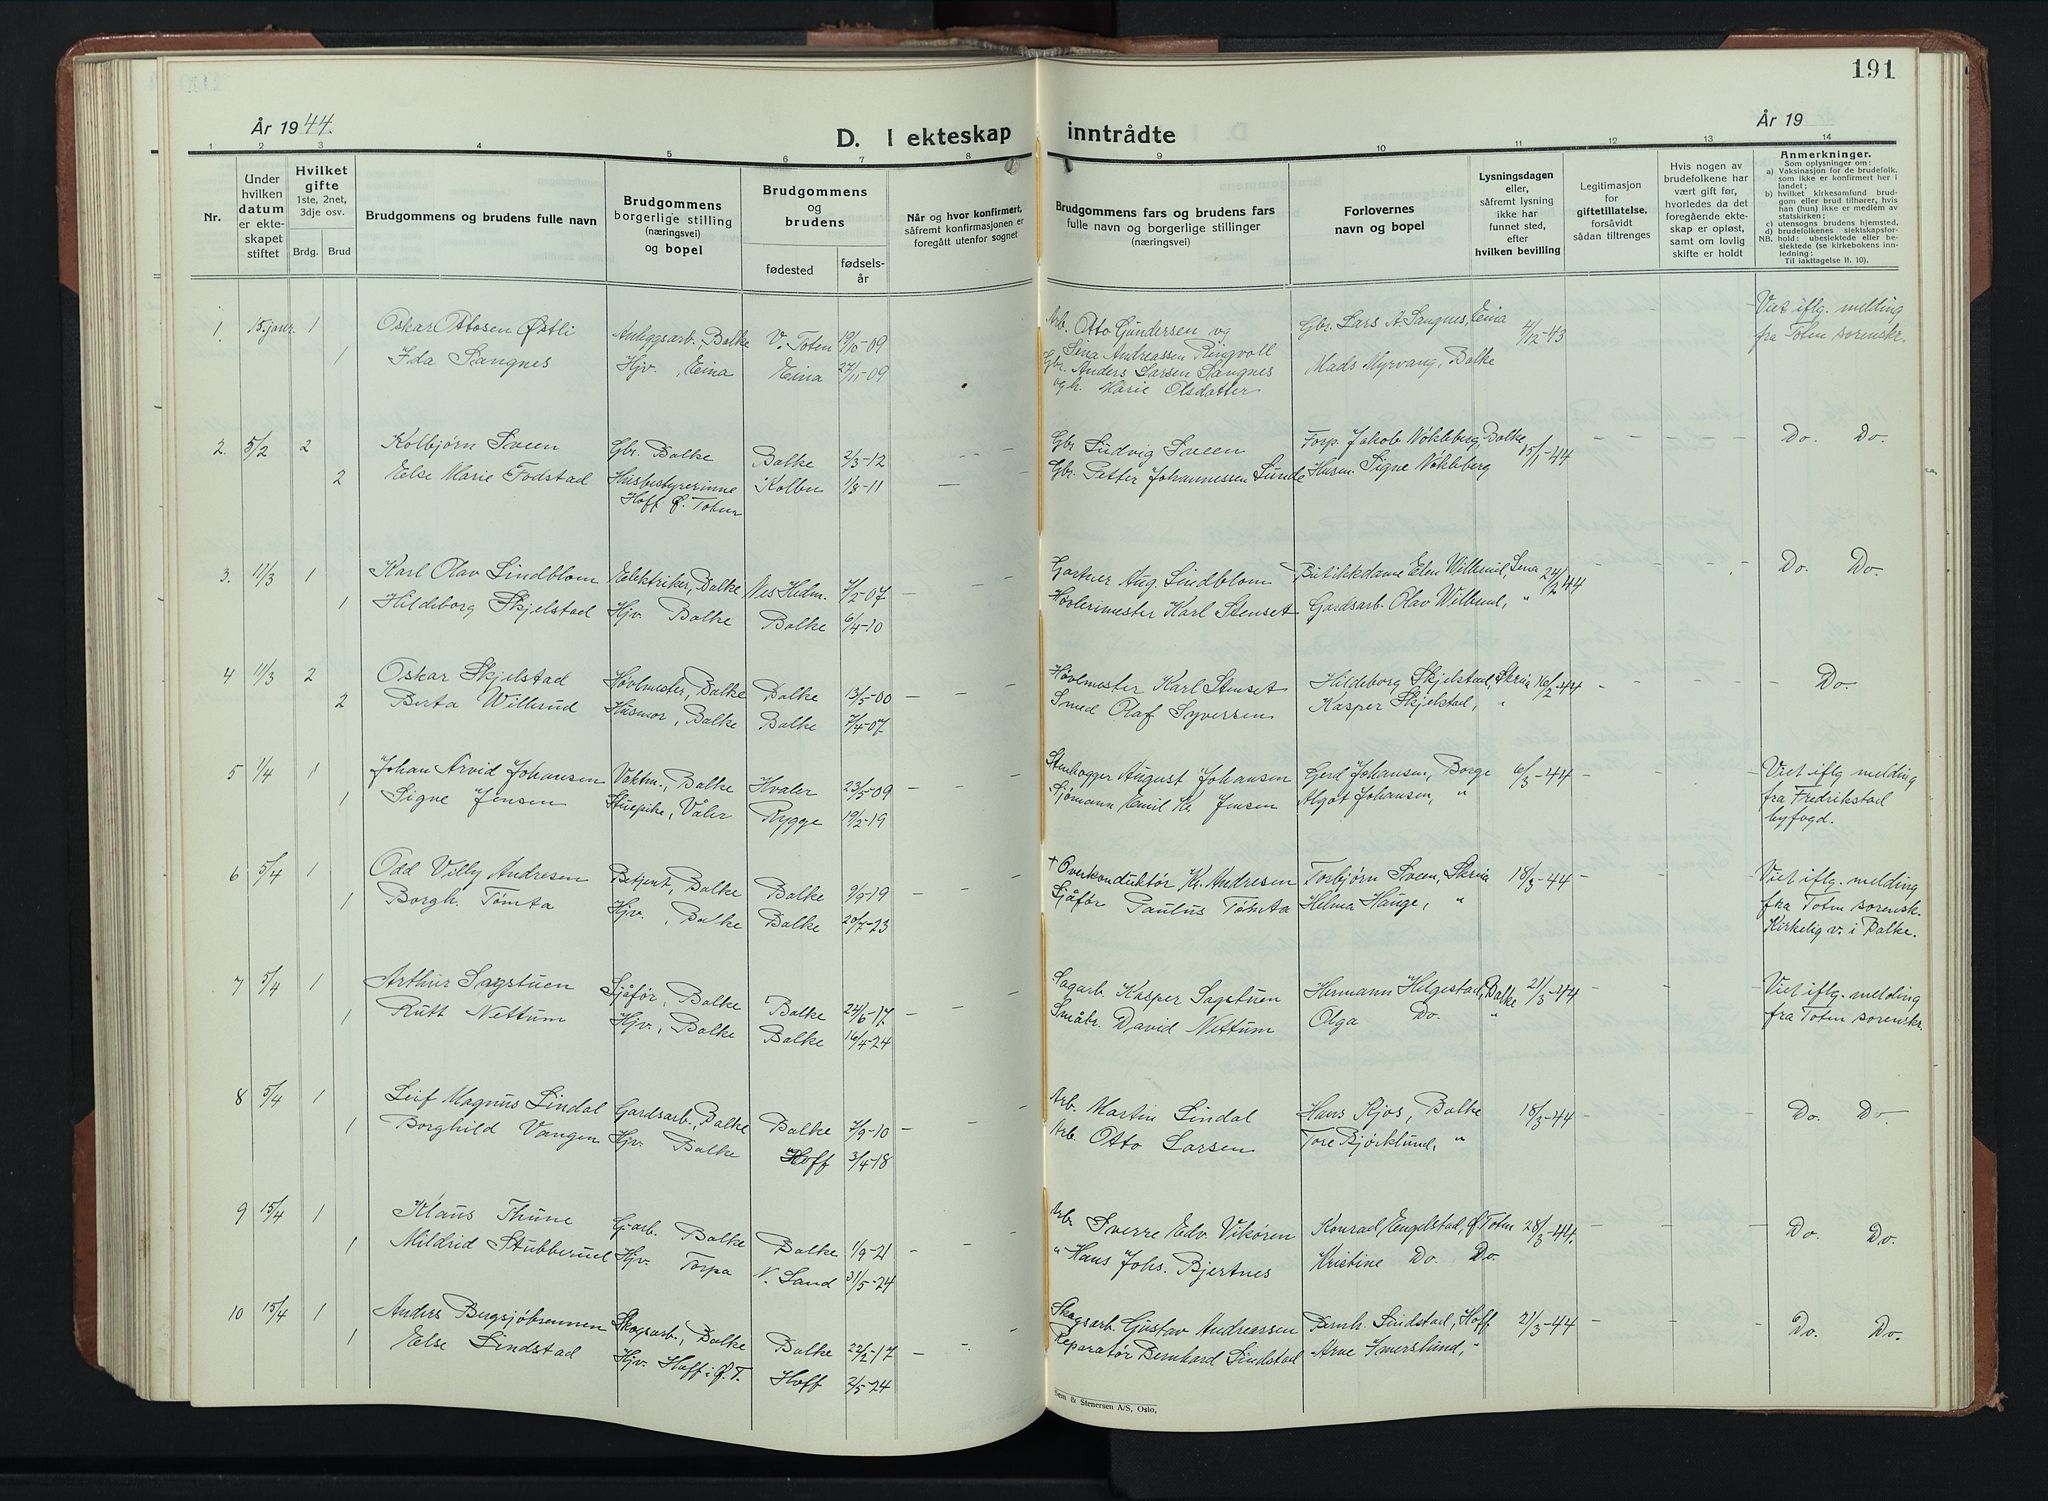 191
År 1944.
D. I ekteskap inntrådte
År 19
1 2 3 4 5 6 7 8 9 10 11 12 13 14
Nr.
Under hvilken datum er ekteskapet stiftet
Hvilket gifte 1ste, 2net, 3dje osv.
Brdg. Brud
Brudgommens og brudens fulle navn
Brudgommens borgerlige stilling (næringsvei) og bopel
Brudgommens og brudens
fødested
fødselsår
Når og hvor konfirmert, såfremt konfirmasjonen er foregått utenfor sognet
Brudgommens fars og brudens fars fulle navn og borgerlige stillinger (næringsvei)
Forlovernes navn og bopel
Lysningsdagen eller, såfremt lysning ikke har funnet sted, efter hvilken bevilling
Legitimasjon for giftetillatelse, forsåvidt sådan tiltrenges
Hvis nogen av brudefolkene har vært gift før, hvorledes da det foregående ekteskap er opløst, samt om lovlig skifte er holdt
Anmerkninger.
Som oplysninger om:
a) Vaksinasjon for de brudefolk, som ikke er konfirmert her i landet;
b) hvilket kirkesamfund brudgom eller brud tilhører, hvis han (hun) ikke er medlem av statskirken;
c) utensogns brudens hjemsted.
d) brudefolkenes slektskapsforhold: ubeslektede eller beslektede (se kirkebokens innledning:
NB. Til iakttagelse II. 10).
1 15. janr. 1 Oskar Ottosen Østli Anleggsarb. Balke V. Toten 19/10-09 Arb. Otto Gundersen og Gbr. Lars A. Sangnes, Eina 4/12-43 Viet iflg. melding
Sina Andreassen Ringvoll fra Toten sorenskr.
1 Ida Sangnes Hjv., Eina Eina 27/11-09 Gbr. Anders Larsen Sangnes Mads Myrvang, Balke
og h. Marie Olsdatter
2. 5/2 2 Kolbjørn Sveen Gbr. Balke Balke 2/3-12 Gbr. Ludvig Sveen Forp. Jakob Nøkleberg, Balke 15/1-44 Do. Do.
2 Else Marie Fodstad Husbestyrerinne Kolbu 1/8-11 Gbr. Petter Johannessen Lunde Husm. Signe Nøkleberg
Hoff Ø. Toten
3. 11/3 1 Karl Olav Lindblom Elektriker, Balke Nes Hedm. 7/2-07 Gartner Aug. Lindblom Butikkdame Elen Willerud, Lena 24/2-44 Do. Do.
1 Hildeborg Skjelstad Hjv. Balke Balke 6/4-10 Høvlerimester Karl Stenset Gardsarb. Olav Willerud, "
4 11/3 2 Oskar Skjelstad Høvlmester, Balke Balke 13/5-00 Høvlmester Karl Stenset Hildeborg Skjelstad, Skreia 16/2-44 Do.
2 Berta Willerud Husmor, Balke Balke 7/4-07 Smed Olaf Syversen Kasper Skjelstad, "
5 1/4 1 Johan Arvid Johansen Vaktm., Balke Hvaler 23/5-09 Stenhogger August Johansen Gerd Johansen, Borge 6/3-44 Viet iflg. melding
1 Signe Jensen Stuepike, Våler Rygge 19/2-19 Sjømann Emil Kr. Jensen Algot Johansen, " fra Fredrikstad
byfogd.
6 5/4 1 Odd Villy Andresen Betjent, Balke Balke 9/9-19 + Overkonduktør Kr. Andresen Torbjørn Sveen, Skreia 18/3-44 Viet iflg. melding
1 Borgh. Tømta Hjv., Balke Balke 20/7-23 Sjåfør Paulus Tømta Helma Hauge, " fra Toten sorensk.
Kirkelig v. i Balke.
7 5/4 1 Arthur Sagstuen Sjåfør, Balke Balke 24/6-17. Sagarb. Kasper Sagstuen Hermann Helgestad, Balke 21/3-44 Viet iflg. melding
1 Ruth Nettum Hjv., Balke Balke 16/4-24 Småbr. David Nettum Olga Do. " fra Toten sorenskr.
8 5/4 1 Leif Magnus Lindal Gardsarb., Balke Balke 7/9-10 Arb. Martin Lindal Hans Kjos, Balke 18/3-44 Do. Do
1 Borghild Vangen Hjv. Balke Hoff 3/4-18 Arb. Otto Larsen Tore Bjørklund, "
9 15/4 1 Klaus Thune G.-arb. Balke Balke 1/9-21 Arb Sverre Edv. Vikøren Konrad Engelstad, Ø. Toten 28/3-44. Do. Do.
1 Mildrid Stubberud Hjv. Torpa N. Land 31/5-24 " Hans Johs. Bjertnes Kristine Do. Do.
10 15/4 1 Anders Bugsjøbrennen Skogsarb., Balke Balke 22/2-17 Skogsarb. Gustav Andreassen Bernh. Lindstad, Hoff 21/3-44 Do. Do.
1 Else Lindstad Hjv. Hoff i Ø. T. Hoff 2/5-24 Reparatør Bernhard Lindstad Arne Imerslund, "
Sem & Stenersen A/S, Oslo.